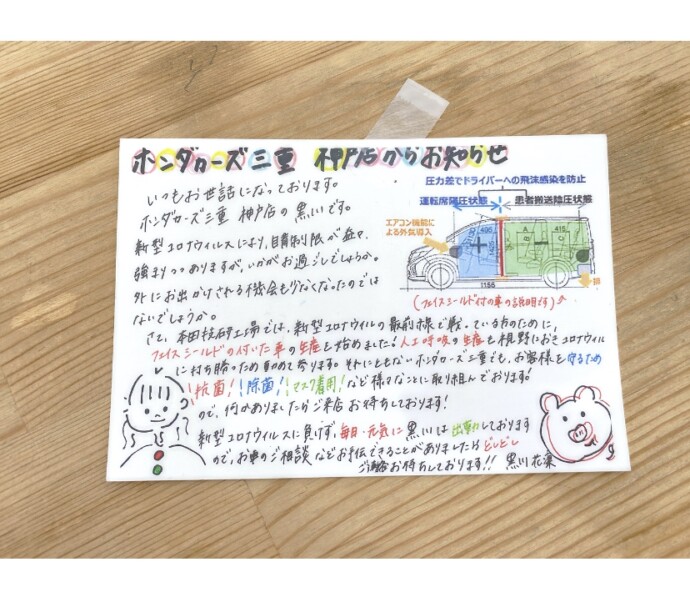 ホンダカーズ三重 神戸店からお知らせ
いつもお世話になっております。
ホンダカーズ三重 神戸店の黒川です。
新型コロナウィルスにより、自粛制限が益々、
強まりつつありますが、いかがお過ごしでしょうか。
外にお出かけされる機会も少なくなったのでは
ないでしょうか。
圧力差でドライバーへの飛沫感染を防止
運転席陽圧状態
患者搬送陰圧状態
エアコン機能に
よる外気導入
490
A
415
1155
(フェイスシールド付の車の説明です)
さて、本田技研工場では、新型コロナウイルスの最前線で戦っている方のために、
フェイスシールドの付いた車の生産を始めました!人工呼吸の生産も視野におきコロナウィル
に打ち勝つため動めて参ります。それにともないホンダカーズ三重でも、お客様を守るため
抗菌!除菌!マスク着用!など様々なことに取り組んでおります!
ので、何かありましたらご来店お待ちしております!
新型コロナウイルスに負けず、毎日・元気に黒川は出勤しております
ので、お車のご相談などお手伝できることがありましたらどしどし
ご連絡お待ちしております!! 黒川花凜